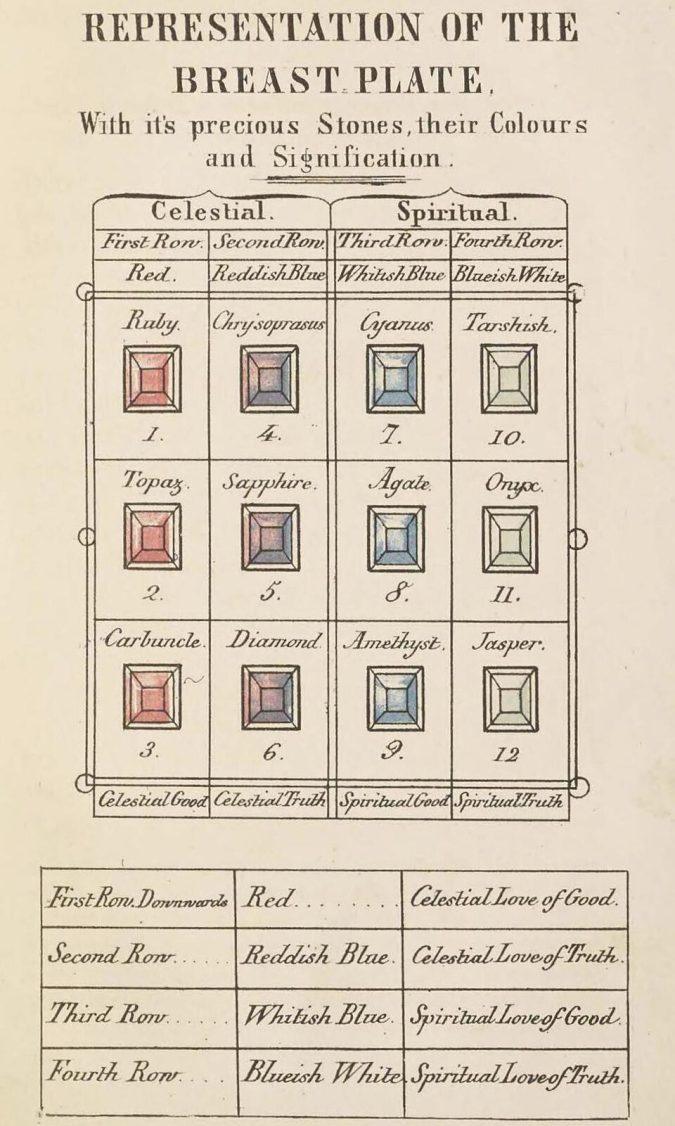 REPRESENTATION OF THE
BREAST PLATE,
With it's precious Stones, their Colours
and Signification.
Celestial. Spiritual.
First Row. Second Row. Third Row. Fourth Row.
Red. Reddish Blue Whitish Blue Blueish White
Ruby. Chrysoprasus Cyanus. Tarshish.
1. 4. 7. 10.
Topaz. Sapphire. Agate. Onyx.
2. 5. 8. 11.
Carbuncle. Diamond. Amethyst. Jasper.
3. 6. 9. 12
Celestial Good Celestial Truth Spiritual Good Spiritual Truth
First Row. Downwards Red........ Celestial Love of Good.
Second Row...... Reddish Blue. Celestial Love of Truth.
Third Row...... Whitish Blue. Spiritual Love of Good.
Fourth Row.... Blueish White. Spiritual Love of Truth.